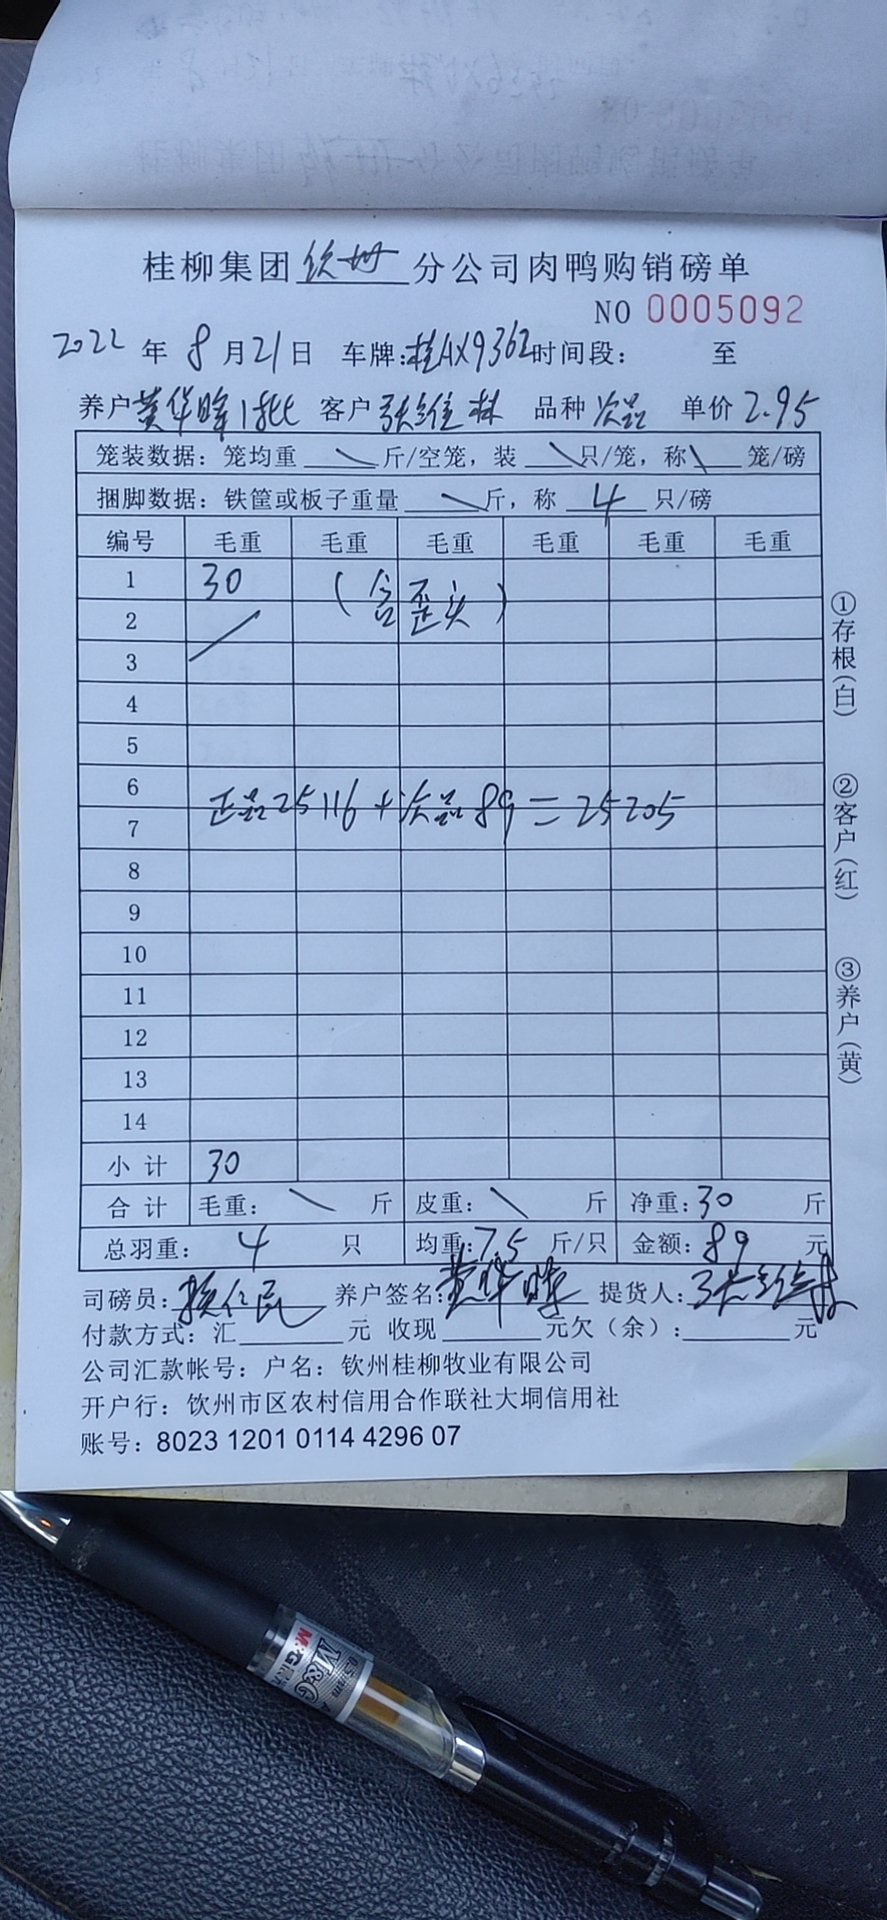 桂柳集团钦州分公司肉鸭购销磅单
NO 0005092
2022年8月21日 车牌:桂AX9362时间段： 至
养户黄华晖1批 客户张维林 品种次品 单价2.95
笼装数据：笼均重\斤/空笼，装\只/笼，称\笼/磅
捆脚数据：铁筐或板子重量\斤，称4只/磅
编号 毛重 毛重 毛重 毛重 毛重 毛重
1 30 （含歪头）
2
3
4
5
6
正品25116+次品89=25205
7
8
9
10
11
12
13
14
小计 30
合计 毛重：\斤 皮重：\斤 净重：30斤
总羽重：4只 均重：7.5斤/只 金额：89元
司磅员： 养户签名：黄华晖 提货人：张维林
付款方式：汇____元 收现____元欠（余）：____元
公司汇款帐号：户名：钦州桂柳牧业有限公司
开户行：饮州市区农村信用合作联社大垌信用社
账号：8023 1201 0114 4296 07
①存根（白）
②客户（红）
③养户（黄）
M&G
0.5mm